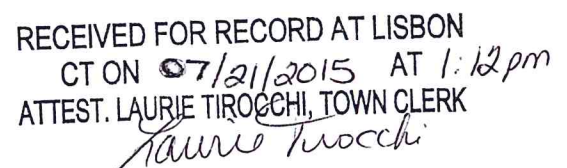 RECEIVED FOR RECORD AT LISBON
CT ON 07/21/2015 AT 1:12pm
ATTEST. LAURIE TIROCCHI, TOWN CLERK
Laurie Tirocchi